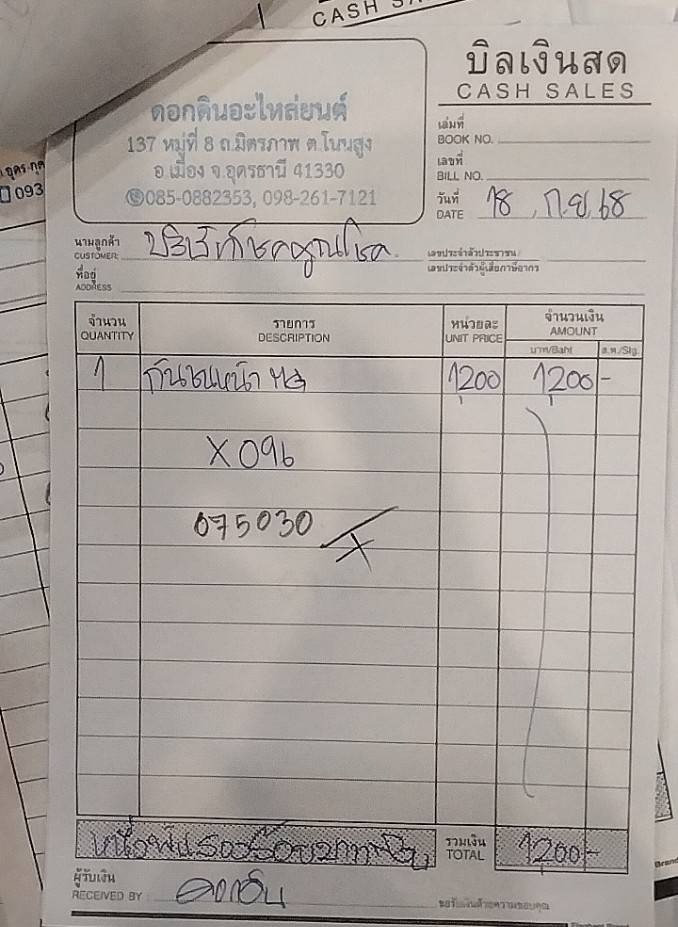 CASH
บิลเงินสด
CASH SALES
ดอกดินอะไหล่ยนต์
137 หมู่ที่ 8 ถ.มิตรภาพ ต.โนนสูง
อ.เมือง จ.อุดรธานี 41330
085-0882353, 098-261-7121
093
เล่มที่
BOOK NO.
เลขที่
BILL NO.
วันที่ 18 ก.ย. 68
DATE
นามลูกค้า
CUSTOMER
เลขประจำตัวประชาชน
เลขประจำตัวผู้เสียภาษีอากร
ที่อยู่
ADDRESS
จำนวน รายการ หน่วยละ จำนวนเงิน
QUANTITY DESCRIPTION UNIT PRICE AMOUNT
บาท/Baht ส.ต./Stg.
1 กันชนหน้า 1200 1200 -
X096
075030
หนึ่งพันสองร้อยบาทถ้วน รวมเงิน 1200 -
TOTAL
ผู้รับเงิน ดอกดิน
RECEIVED BY
ขอรับเงินด้วยความขอบคุณ